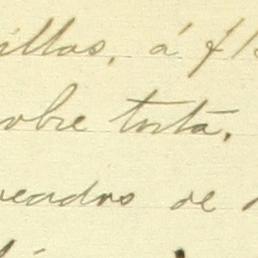 illas, á f
obre torta.
eados de